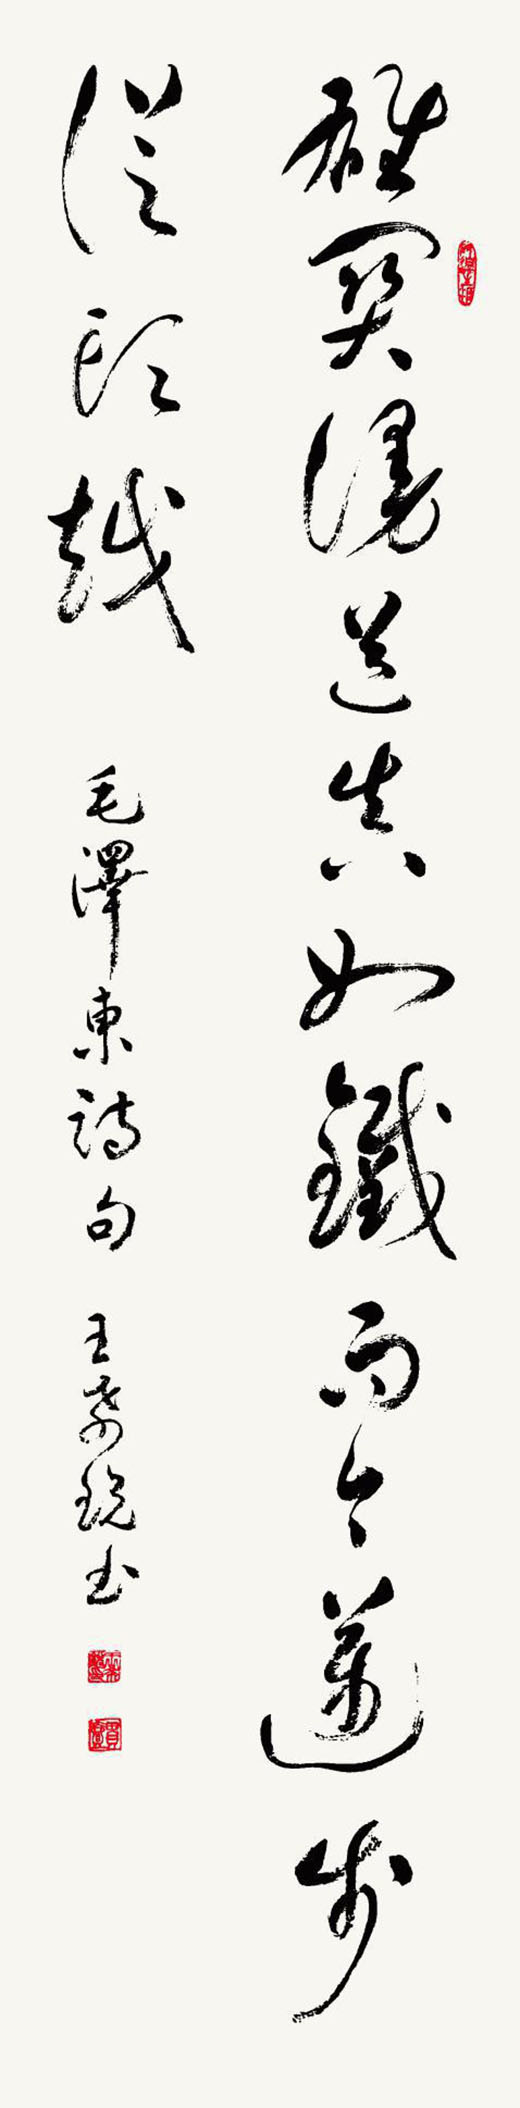 雄關漫道真如鐵而今邁步
從頭越 毛澤東詩句 王